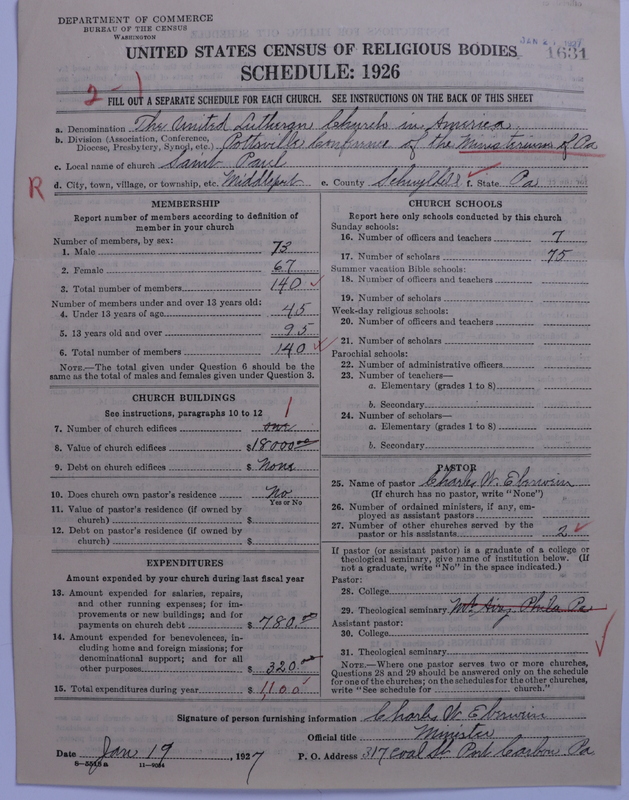 DEPARTMENT OF COMMERCE
BUREAU OF THE CENSUS
WASHINGTON
JAN 2 1927
1631
UNITED STATES CENSUS OF RELIGIOUS BODIES
SCHEDULE: 1926
2-1
FILL OUT A SEPARATE SCHEDULE FOR EACH CHURCH. SEE INSTRUCTIONS ON THE BACK OF THIS SHEET
a. Denomination The United Lutheran Church in America
b. Division (Association, Conference, Diocese, Presbytery, Synod, etc.) Pottsville Conference of the Ministerium of Pa
c. Local name of church Saint Paul
R
d. City, town, village, or township, etc. Middleport e. County Schuylkill f. State Pa
MEMBERSHIP
Report number of members according to definition of
member in your church
Number of members, by sex:
1. Male 73
2. Female 67
3. Total number of members 140
Number of members under and over 13 years old:
4. Under 13 years of age 45
5. 13 years old and over 95
6. Total number of members 140
NOTE.—The total given under Question 6 should be
same as the total of males and females given under Question 3.
CHURCH BUILDINGS
See instructions, paragraphs 10 to 12
1
7. Number of church edifices one
8. Value of church edifices $18000.00
9. Debt on church edifices $ None
10. Does church own pastor's residence No
Yes or No
11. Value of pastor's residence (if owned by
church) $
12. Debt on pastor's residence (if owned by
church) $
EXPENDITURES
Amount expended by your church during last fiscal year
13. Amount expended for salaries, repairs,
and other running expenses; for im-
provements or new buildings; and for
payments on church debt $ 780.00
14. Amount expended for benevolences, in-
cluding home and foreign missions; for
denominational support; and for all
other purposes $ 320.00
15. Total expenditures during year $ 1,100
CHURCH SCHOOLS
Report here only schools conducted by this church
Sunday schools:
16. Number of officers and teachers 7
17. Number of scholars 75
Summer vacation Bible schools:
18. Number of officers and teachers
19. Number of scholars
Week-day religious schools:
20. Number of officers and teachers
21. Number of scholars
Parochial schools:
22. Number of administrative officers
23. Number of teachers—
a. Elementary (grades 1 to 8)
b. Secondary
24. Number of scholars—
a. Elementary (grades 1 to 8)
b. Secondary
PASTOR
25. Name of pastor Charles W. Eberwein
(If church has no pastor, write "None")
26. Number of ordained ministers, if any, em-
ployed as assistant pastors
27. Number of other churches served by the
pastor or his assistants 2
If pastor (or assistant pastor) is a graduate of a college or
theological seminary, give name of institution below. (If
not a graduate, write "No" in the space indicated.)
Pastor:
28. College
29. Theological seminary Mt. Airy Phila Pa
Assistant pastor:
30. College
31. Theological seminary
NOTE.—Where one pastor serves two or more churches,
Questions 28 and 29 should be answered only on the schedule
for one of the churches; on the schedules for the other churches,
write "See schedule for church."
Signature of person furnishing information Charles W. Eberwein
Official title Minister
Date Jan 19, 1927 P. O. Address 317 Coal St Port Carbon Pa
8-5515a 11-9054